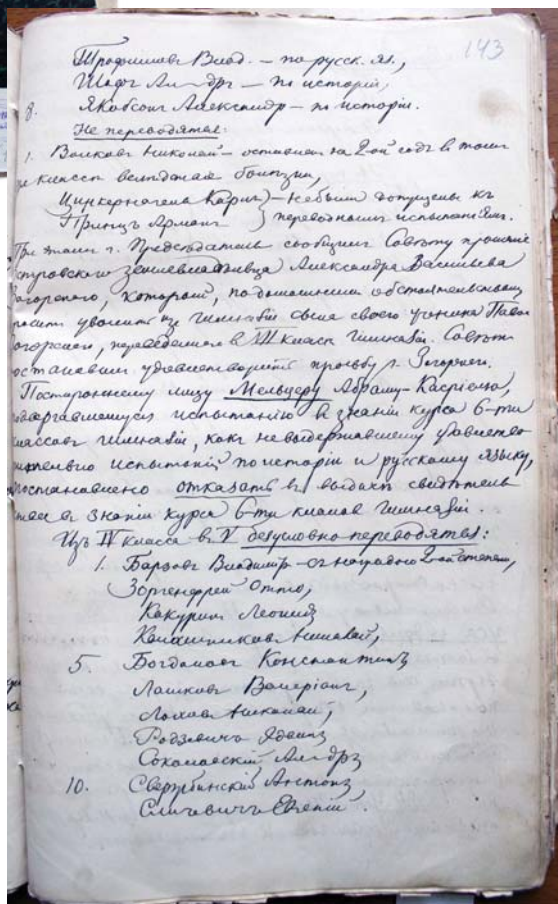 143
Трофимовъ Влад. – по русск. яз.,
Шафъ Ал-дръ – по исторіи,
8. Якобсонъ Александръ – по исторіи.
Не переводятся:
1. Волковъ Николай – оставленъ на 2-ой годъ в томъ
же классѣ вслѣдствіе болѣзни,
Циркернагена Карлъ } – не были допущены къ
Принцъ Арманъ } переводнымъ испытаніямъ.
При этомъ г. Предсѣдатель сообщилъ Совѣту прошеніе
Островскаго землевладѣльца Александра Васильева
Загорскаго, который, по домашнимъ обстоятельствамъ
проситъ уволить из гимназіи сына своего ученика Павла
Загорскаго, переведеннаго в VII классъ гимназіи. Совѣтъ
постановилъ удовлетворить просьбу г. Загорскаго.
Постороннему лицу Мельцеру Абраму-Касрiелю,
подвергавшемуся испытанію в знаніи курса 6-ти
классовъ гимназіи, какъ не выдержавшему удовлетво
рительно испытаній по исторіи и русскому языку,
постановлено отказать в выдачѣ свидѣтель
ства в знаніи курса 6-ти классов гимназіи.
Изъ IV класса в V безусловно переводятся:
1. Барзовъ Владиміръ – съ наградою 2-ой степени,
Зоргенфрей Отто,
Какуринъ Леонидъ
Калашниковъ Николай,
5. Богдановъ Константинъ
Лашковъ Валеріанъ,
Лоховъ Николай,
Родзевичъ Эдвинъ
Соколовскій Ал-дръ
10. Свержбинскій Антонъ
Слиževичъ Евгеній.